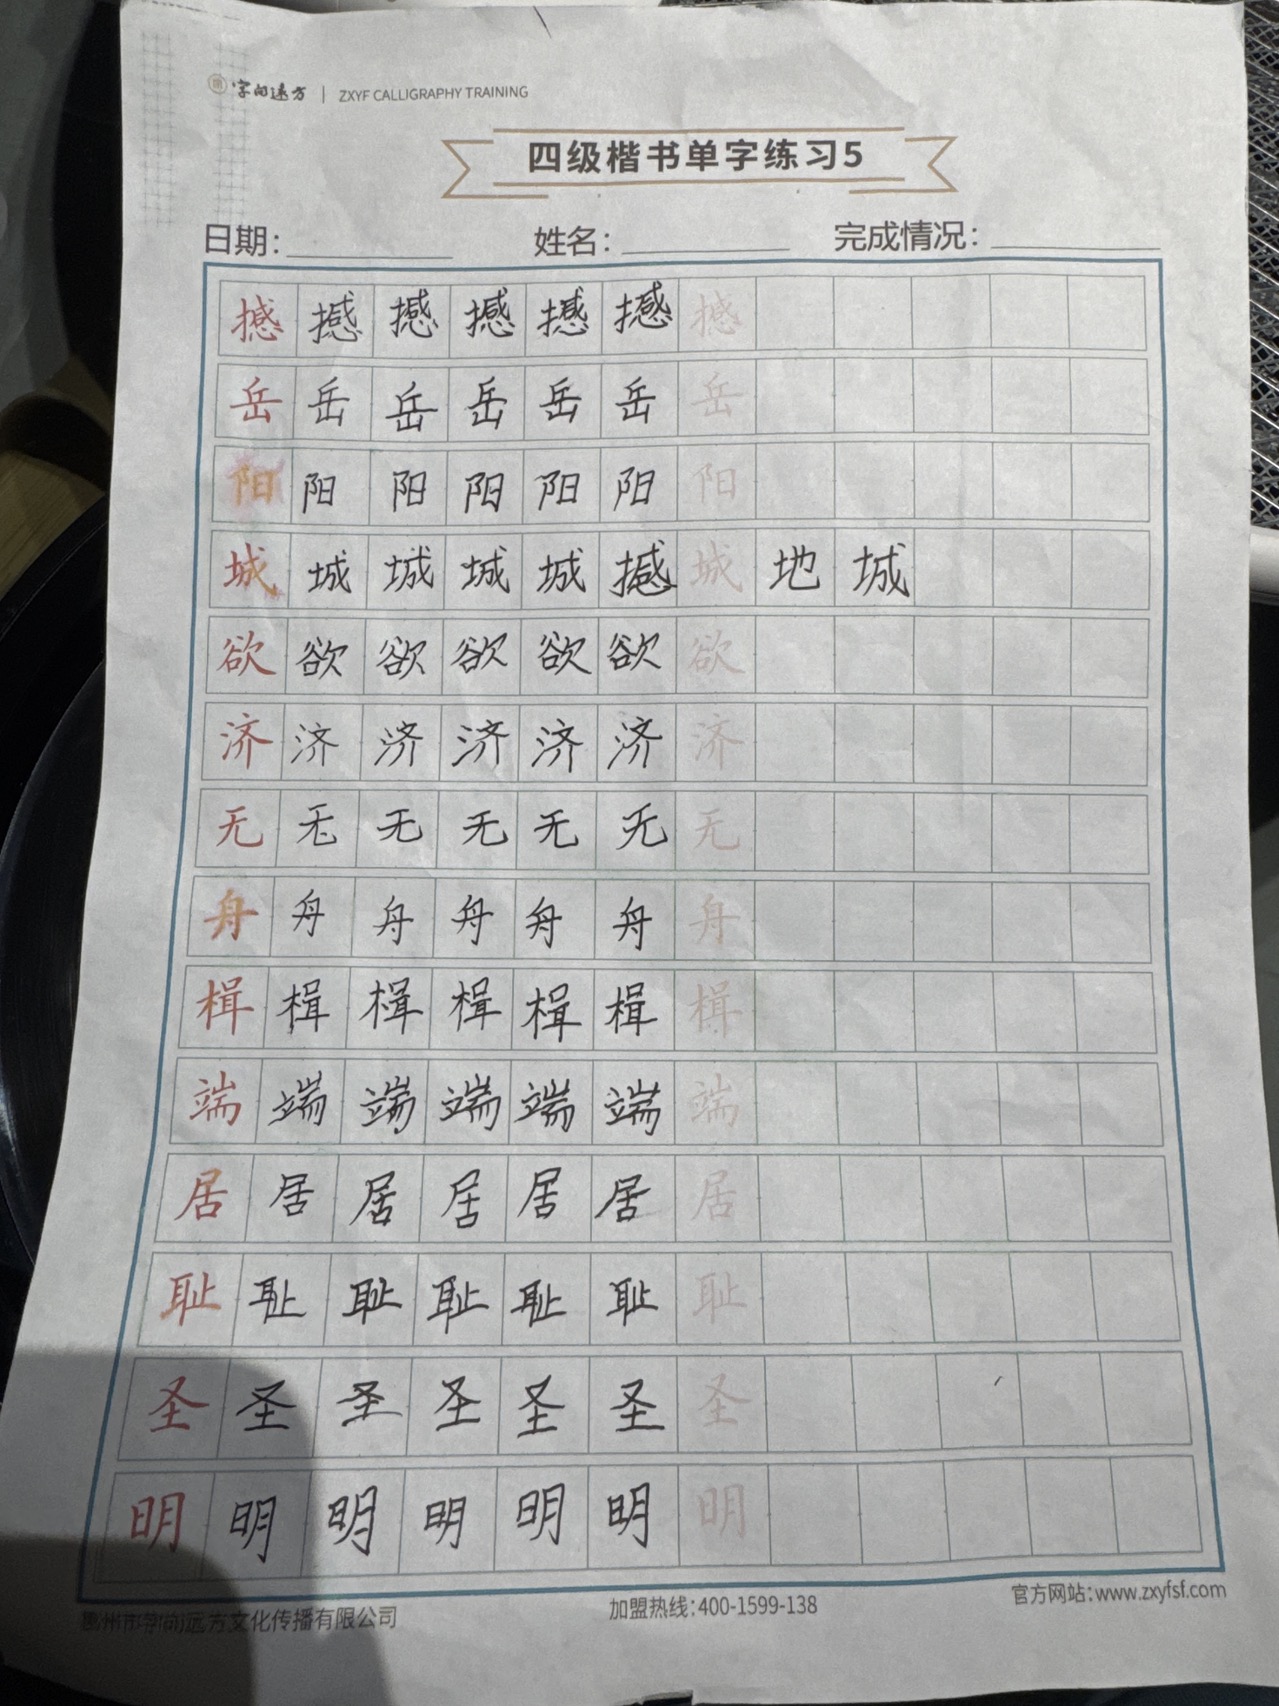 字向远方 | ZXYF CALLIGRAPHY TRAINING
四级楷书单字练习5
日期: 姓名: 完成情况:
撼 撼 撼 撼 撼 撼 撼
岳 岳 岳 岳 岳 岳 岳
阳 阳 阳 阳 阳 阳 阳
城 城 城 城 城 撼 城 地 城
欲 欲 欲 欲 欲 欲 欲
济 济 济 济 济 济 济
无 无 无 无 无 无 无
舟 舟 舟 舟 舟 舟 舟
楫 楫 楫 楫 楫 楫 楫
端 端 端 端 端 端 端
居 居 居 居 居 居 居
耻 耻 耻 耻 耻 耻 耻
圣 圣 圣 圣 圣 圣 圣
明 明 明 明 明 明 明
州市字向远方文化传播有限公司 加盟热线:400-1599-138 官方网站:www.zxyfsf.com